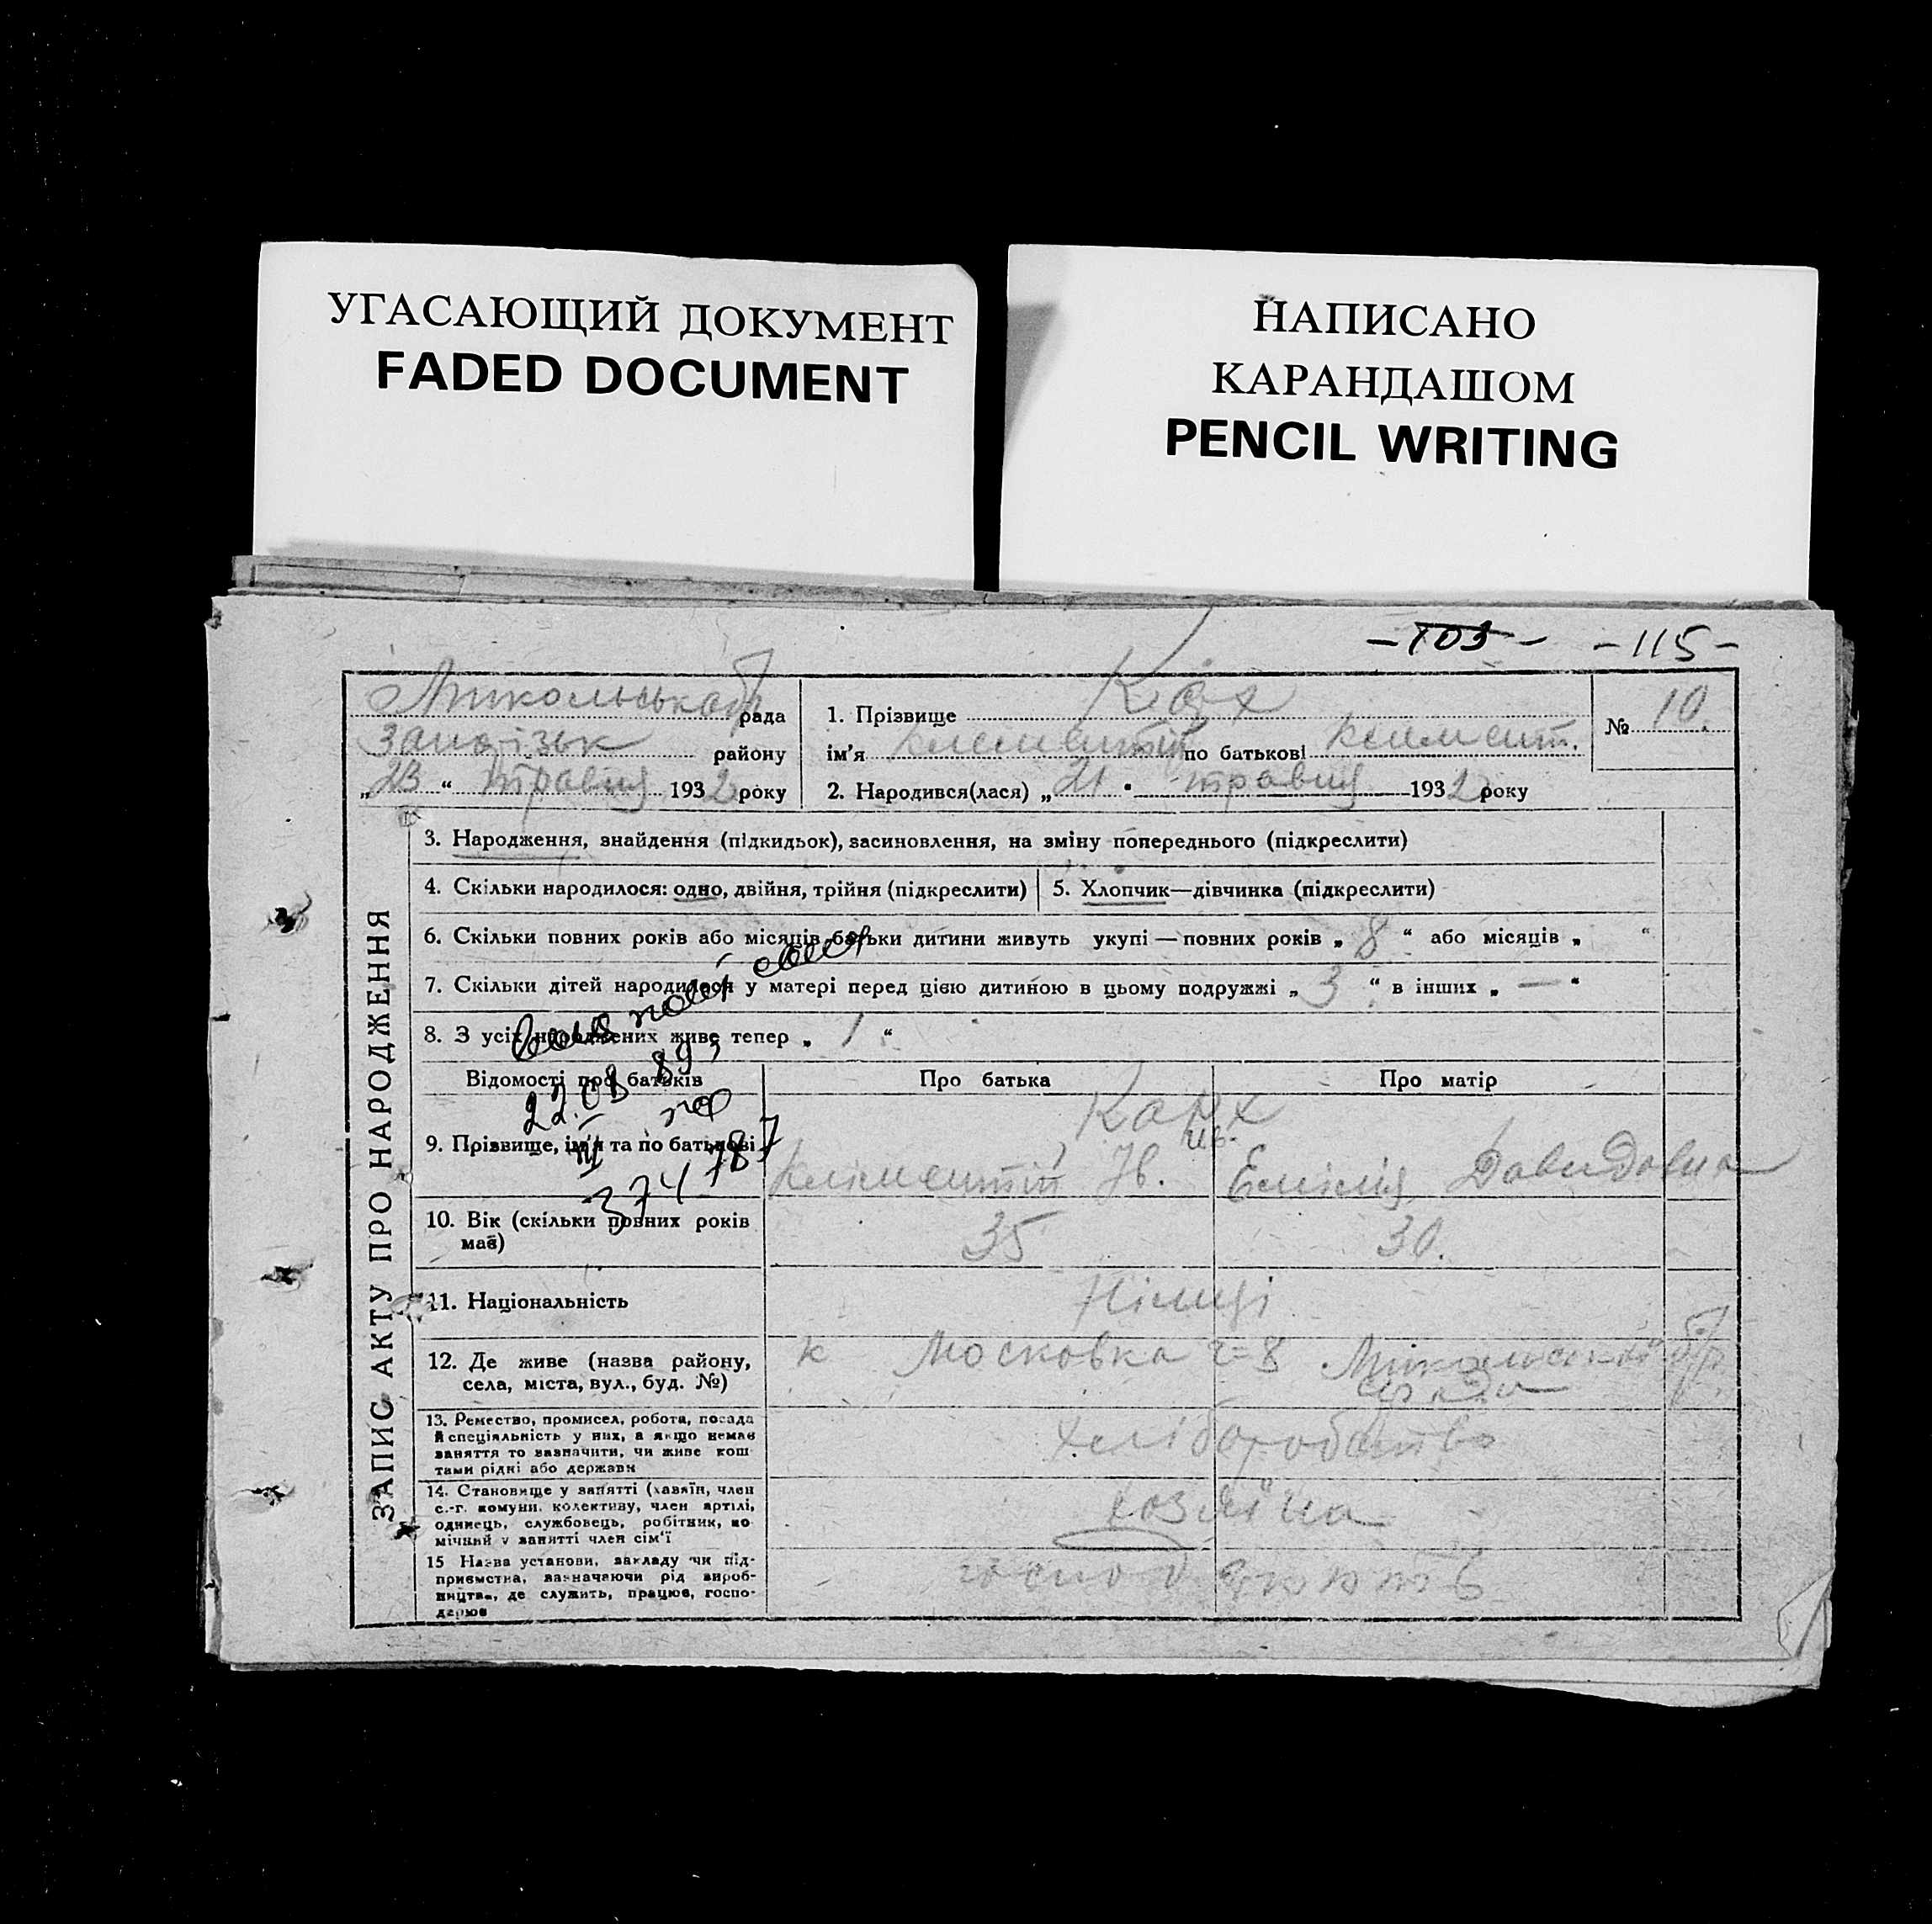 УГАСАЮЩИЙ ДОКУМЕНТ
FADED DOCUMENT
НАПИСАНО
КАРАНДАШОМ
PENCIL WRITING
-103- -115-
рада
району
„23“ травня 1932 року
1. Прізвище Кох
ім'я по батькові Климент.
2. Народився(лася) „21 “ травня 1932 року
№ 10.
ЗАПИС АКТУ ПРО НАРОДЖЕННЯ
3. Народження, знайдення (підкидьок), засиновлення, на зміну попереднього (підкреслити)
4. Скільки народилося: одно, двійня, трійня (підкреслити)
5. Хлопчик—дівчинка (підкреслити)
6. Скільки повних років або місяців батьки дитини живуть укупі — повних років „ 8 “ або місяців „ “
7. Скільки дітей народилося у матері перед цією дитиною в цьому подружжі „ 3 “ в інших „ — “
8. З усіх народжених живе тепер „ 1 “
22.08 89
III
374787
Відомості про батьків
Про батька
Про матір
9. Прізвище, ім'я та по батькові
Кох
Климентій Ив.
Емілія Давидовна
10. Вік (скільки повних років
має)
35
30.
11. Національність
Німці
12. Де живе (назва району,
села, міста, вул., буд. №)
к Московка ч=8
13. Ремество, промисел, робота, посада
й спеціяльність у них, а якщо немає
заняття то зазначити, чи живе кош
тами рідні або держави
хліборобство
14. Становище у занятті (хазяїн, член
с.-г. комуни, колективу, член артілі,
одинець, службовець, робітник, по
мічний у занятті член сім'ї
хозяїна
15 Назва установи, закладу чи під-
приємства, зазначаючи рід вироб-
ництва, де служить, працює, госпо-
дарює